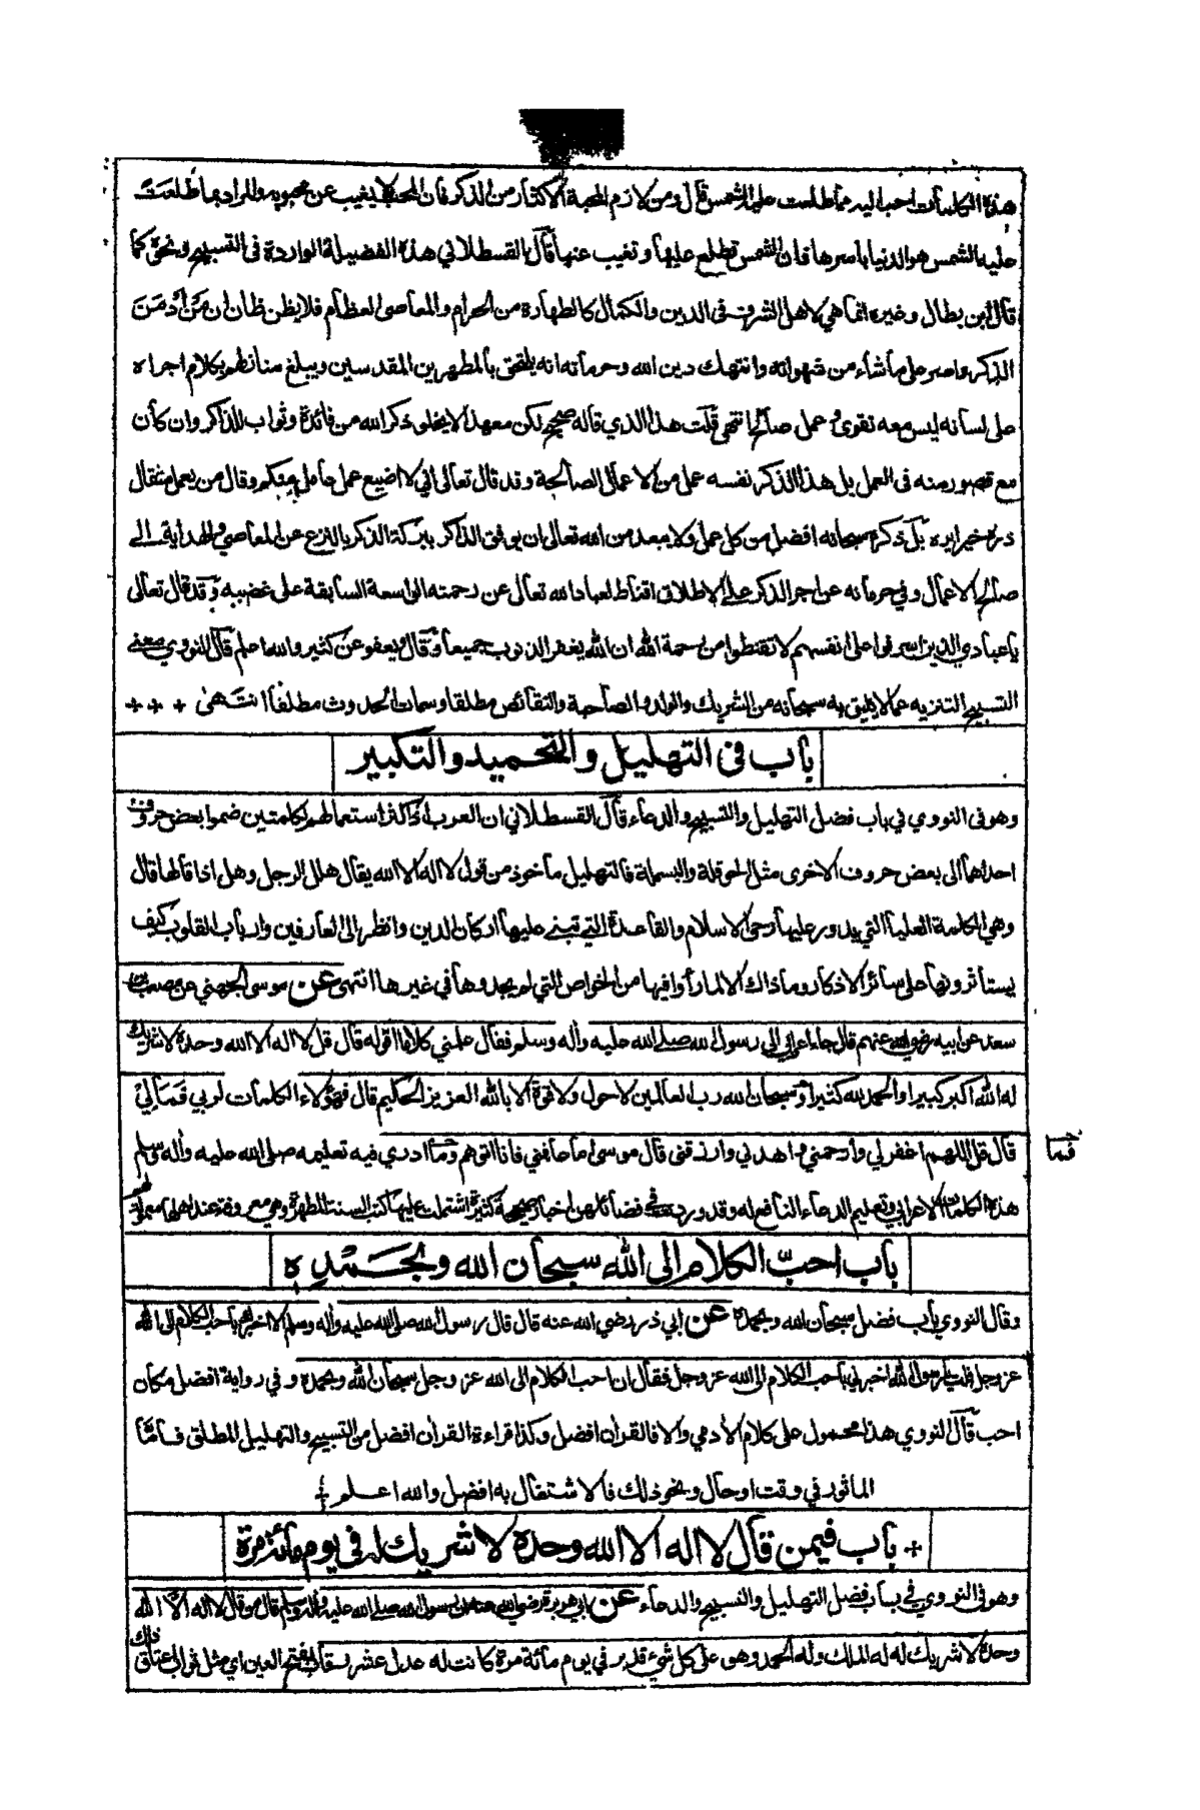 هذه الكلمات احب اليه مما طلعت عليه الشمس قال ومن لازم المحبة الاكثار من الذكر فان المحب لا يغيب عن محبوبه والمراد بما طلعت
عليه الشمس هو الدنيا باسرها فان الشمس تطلع عليها وتغيب عنها قال القسطلاني هذه الفضيلة الواردة فى التسبيح ونحوه كما
قال ابن بطال وغيره انما هي لاهل الشرف فى الدين والكمال كالطهارة من الحرام والمعاصى العظام فلا يظن ظان ان من ادمن
الذكر واصر على ما شاء من شهواته وانتهك دين الله وحرماته انه يلتحق بالمطهرين المقدسين ويبلغ منازلهم بكلام اجراه
على لسانه ليس معه تقوى و عمل صالح انتهى قلت هذا الذي قاله صحيح لكن معهذا لا يخلو ذكر الله من فائدة وثواب للذاكر وان كان
مع قصور منه فى العمل بل هذا الذكر نفسه عمل من الاعمال الصالحة وقد قال تعالى اني لا اضيع عمل عامل منكم وقال من يعمل مثقال
ذرة خيرا يره بل ذكره سبحانه افضل من كل عمل ولا يبعد من الله تعالى ان يوفق الذاكر ببركة الذكر بالنزع عن المعاصي والهداية الى
صالح الاعمال وفي حرمانه عن اجر الذكر على الاطلاق اقناط لعباد الله تعالى عن رحمته الواسعة السابقة على غضبه وقد قال تعالى
يا عبادي الذين اسرفوا على انفسهم لا تقنطوا من رحمة الله ان الله يغفر الذنوب جميعا وقال ويعفو عن كثير والله اعلم قال النووي معنى
التسبيح التنزيه عما لا يليق به سبحانه من الشريك والولد والصاحبة والنقائص مطلقا وسمات الحدوث مطلقا انتهى + + +
باب فى التهليل والتحميد والتكبير
وهو فى النووي في باب فضل التهليل والتسبيح والدعاء قال القسطلاني ان العرب اذا كثر استعمالهم لكلمتين ضموا بعض حروف
احداهما الى بعض حروف الاخرى مثل الحوقلة والبسملة فالتهليل مأخوذ من قول لا اله الا الله يقال هلل الرجل وهل اذا قالها قال
وهي الكلمة العليا التي يدور عليها رحى الاسلام والقاعدة التي تبنى عليها اركان الدين وانظر الى العارفين وارباب القلوب كيف
يستأثرونها على سائر الاذكار وما ذاك الا لما رأوا فيها من الخواص التي لم يجدوها في غيرها انتهى عن موسى الجهني عن مصعب بن
سعد عن ابيه رضي الله عنهم قال جاء اعرابي الى رسول الله صلى الله عليه واله وسلم فقال علمني كلاما اقوله قال قل لا اله الا الله وحده لا شريك
له الله اكبر كبيرا والحمد لله كثيرا وسبحان الله رب العالمين لا حول ولا قوة الا بالله العزيز الحكيم قال فهؤلاء الكلمات لربي فما لي
قال قل اللهم اغفر لي وارحمني واهدني وارزقني قال موسى اما عافني فانا اتوهم وما ادري فيه تعليمه صلى الله عليه واله وسلم
فما
هذه الكلمات الاعرابي وتعليم الدعاء النافع له وقد ورد في فضائلهن اخبار صحيحة كثيرة اشتملت عليها كتب السنة المطهرة وهي معروفة عند اهلها
باب احب الكلام الى الله سبحان الله وبحمده
وقال النووي باب فضل سبحان الله وبحمده عن ابي ذر رضي الله عنه قال قال رسول الله صلى الله عليه واله وسلم الا اخبرك باحب الكلام الى الله
عز وجل قلت يا رسول الله اخبرني باحب الكلام الى الله عز وجل فقال ان احب الكلام الى الله عز وجل سبحان الله وبحمده وفي رواية افضل مكان
احب قال النووي هذا محمول على كلام الادمي والا فالقران افضل وكذا قراءة القران افضل من التسبيح والتهليل المطلق فاما
الماثور في وقت او حال ونحو ذلك فالاشتغال به افضل والله اعلم
+ باب فيمن قال لا اله الا الله وحده لا شريك له فى يوم مائة مرة
وهو فى النووي في باب فضل التهليل والتسبيح والدعاء عن ابي هريرة رضي الله عنه ان رسول الله صلى الله عليه واله وسلم قال من قال لا اله الا الله
وحده لا شريك له له الملك وله الحمد وهو على كل شيء قدير في يوم مائة مرة كانت له عدل عشر رقاب بفتح العين اي مثل ثواب اعتاق
ذلك